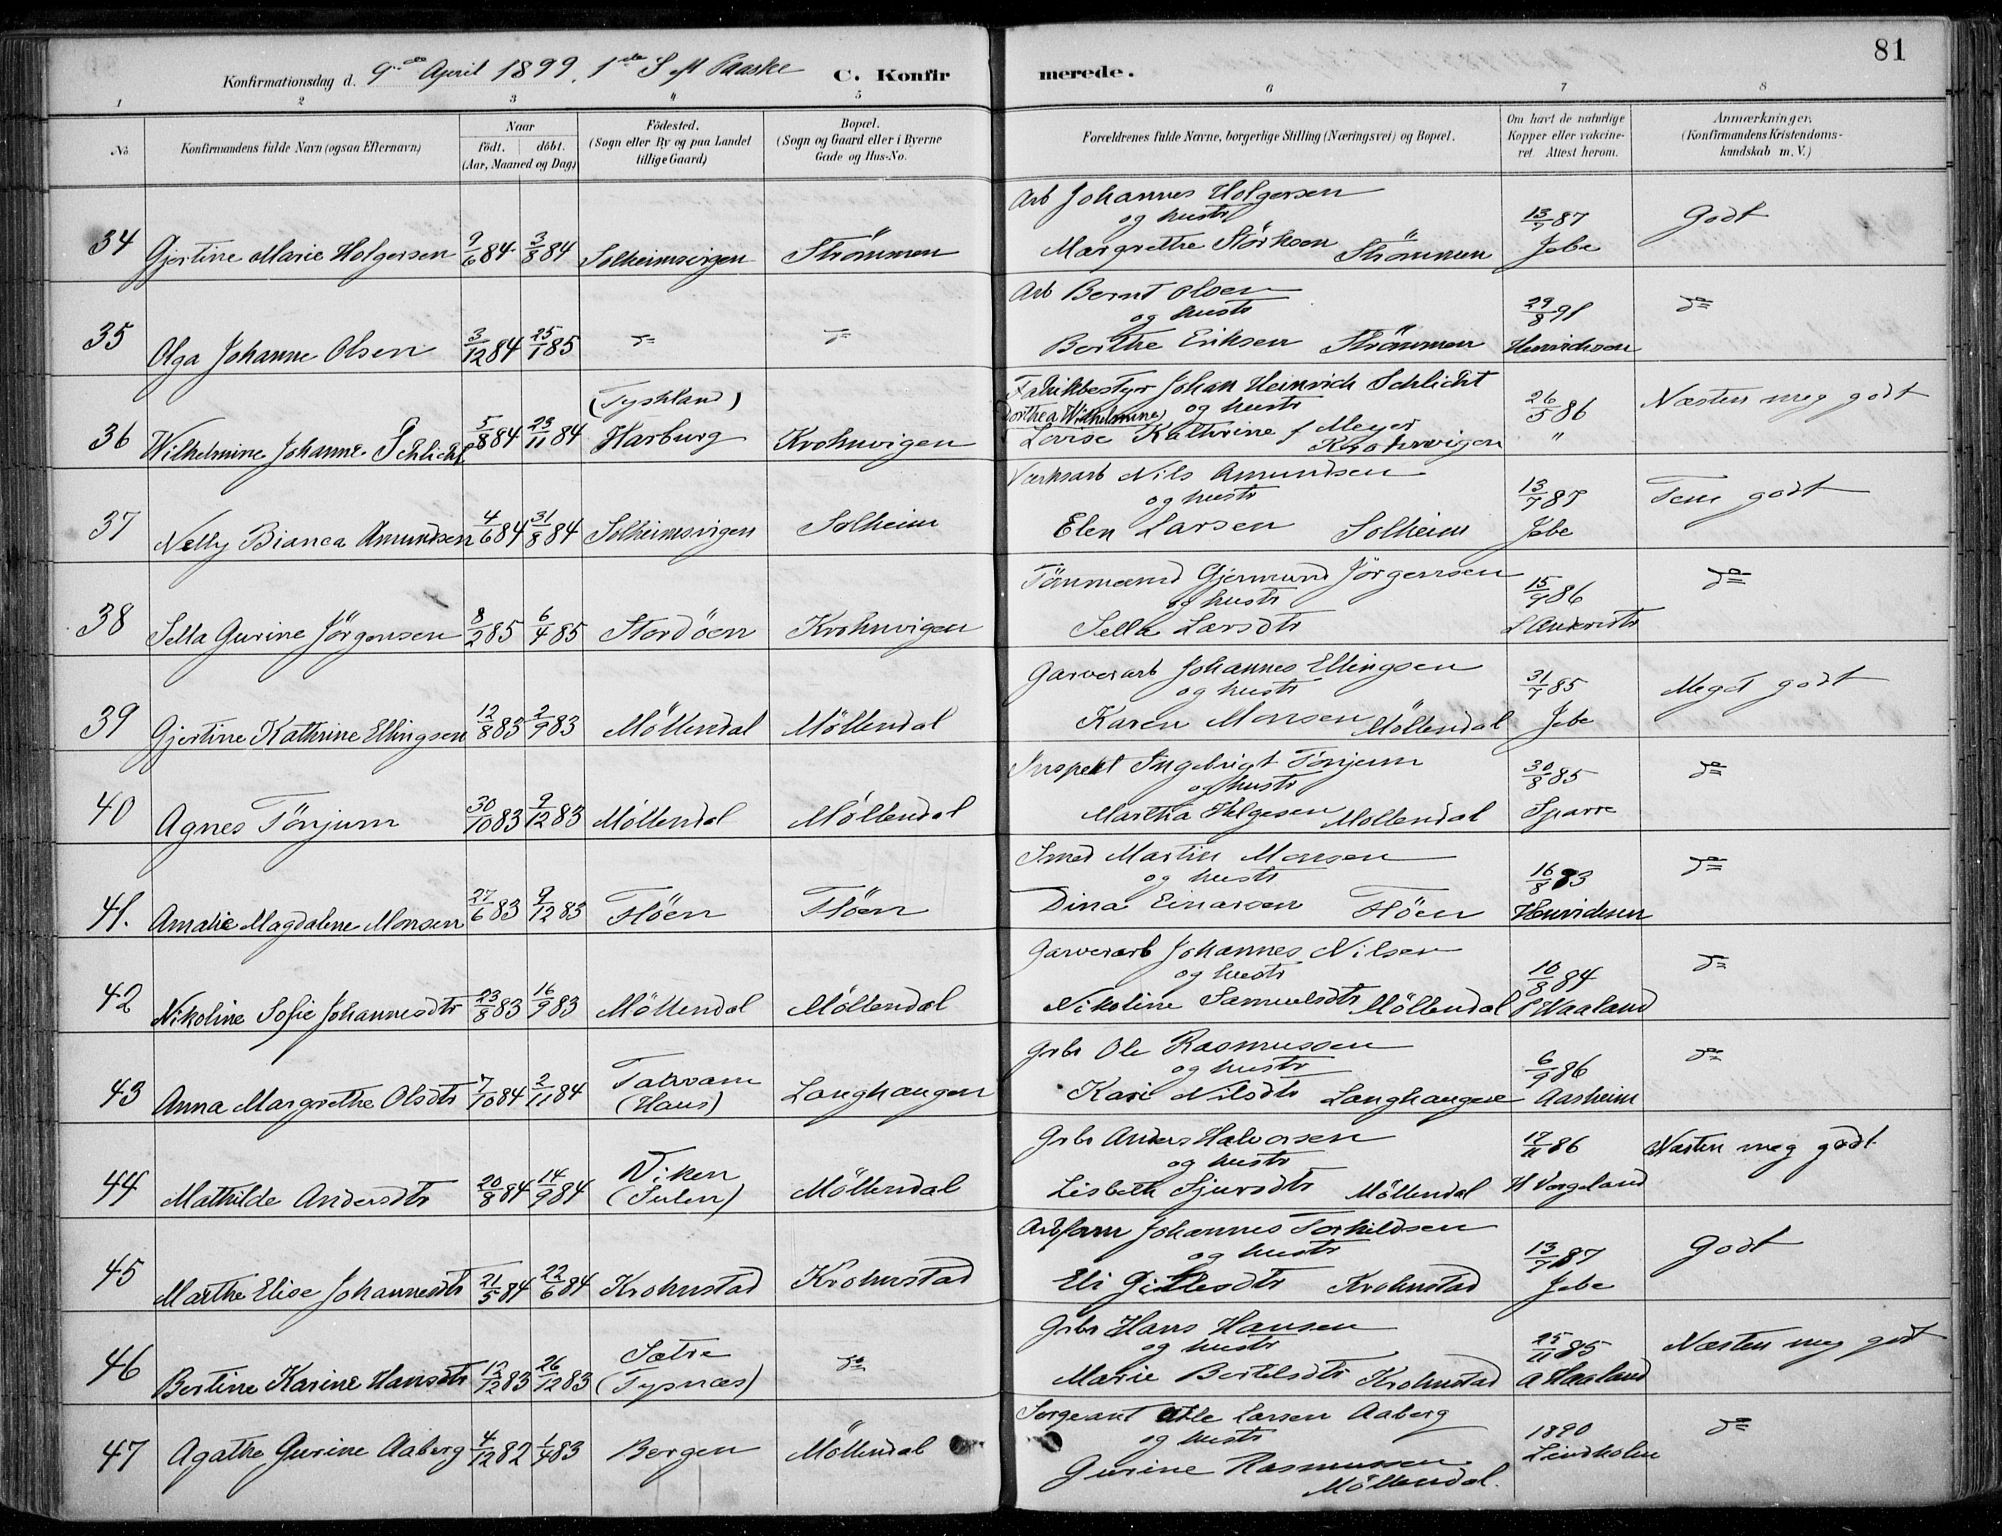 81
Konfirmationsdag d. 9de April 1899. 1ste S eft Paaske C. Konfirmerede.
1 2 3 4 5 6 7 8
No.
Konfirmandens fulde Navn (ogsaa Efternavn)
Naar
født. døbt.
(Aar, Maaned og Dag)
Födested.
(Sogn eller By og paa Landet
tillige Gaard)
Bopæl.
(Sogn og Gaard eller i Byerne
Gade og Hus-No.
Forældrenes fulde Navne, borgerlige Stilling (Næringsvei) og Bopæl.
Om havt de naturlige
Kopper eller vakcine-
ret. Attest herom.
Anmærkninger.
(Konfirmandens Kristendoms-
kundskab m. V.)
Arb Johannes Holgersen
og hustr
34 Gjertine Marie Holgersen 9/6 84 3/8 84 Solheimsvigen Strömmen Margrethe Störksen Strömmen 13/7 87 Jebe Godt
Arb Bernt Olsen
og hustr
35 Olga Johanne Olsen 3/12 84 25/1 85 " " Berthe Eriksen Strömmen 29/8 91 Henrichsen do
Fabrikbestyr Johan Heinrich Schlicht
Dorthea Wilhelmine og hustr
36 Wilhelmine Johanne Schlicht 5/8 84 23/11 84 (Tyskland) Harburg Krohnvigen Lovise Kathrine f Meyer Krohnvigen 26/5 86 " Næsten meg godt
Værksarb Nils Amundsen
og hustr
37 Nelly Bianca Amundsen 4/6 84 31/8 84 Solheimsvigen Solheim Elen Larsen Solheim 13/7 87 Jebe Tem godt
Tömmermd Gjermund Jörgensen
og hustr
38 Sella Gurine Jörgensen 8/2 85 6/4 85 Stordöen Krohnvigen Sella Larsdtr 15/9 86 do
Garverarb Johannes Ellingsen
og hustr
39 Gjertine Kathrine Ellingsen 12/8 83 2/9 83 Möllendal Möllendal Karen Monsen Möllendal 31/7 85 Jebe Meget godt
Inspekt Ingebrigt Tönjum
og hustr
40 Agnes Tönjum 30/10 83 9/12 83 Möllendal Möllendal Martha Helgesen Möllendal 30/8 85 Sparre do
Smed Martin Monsen
og hustr
41. Amalie Magdalene Monsen 27/6 83 9/12 83 Flöen Flöen Dina Einarsen Flöen 16/8 83 Henrichsen do
Garverarb Johannes Nilsen
og hustr
42 Nikoline Sofie Johannesdtr 23/8 83 16/9 83 Möllendal Möllendal Nikoline Samuelsdtr Möllendal 10/8 84 Haaland do
Grbr Ole Rasmussen
og hustr
43 Anna Margrethe Olsdtr 7/10 84 2/11 84 Takvam (Haus) Langhaugen Kari Nilsdtr Langhaugen 6/9 86 Aasheim do
Grbr Anders Halvorsen
og hustr
44 Mathilde Andersdtr 20/8 84 14/9 84 Niken (Sulen) Möllendal Lisbeth Sjursdtr Möllendal 17/11 86 H Vergeland Næsten meg godt
Arbform Johannes Torkildsen
og hustr
45 Marthe Elise Johannesdtr 21/5 84 22/6 84 Krohnstad Krohnstad Eli Gitlesdtr Krohnstad 13/7 87 Jebe Godt
Grbr Hans Hansen
og hustr
46 Bertine Karine Hansdtr 12/12 83 26/12 83 Sætre (Tysnæs) do Marie Bertelsdtr Krohnstad 25/11 85 A Haaland Næsten meg godt
Sergeant Atle Larsen Aaberg
og hustr
47 Agathe Gurine Aaberg 4/12 82 1/4 83 Bergen Möllendal Gurine Rasmussen 1890 Lindholm do
Möllendal.